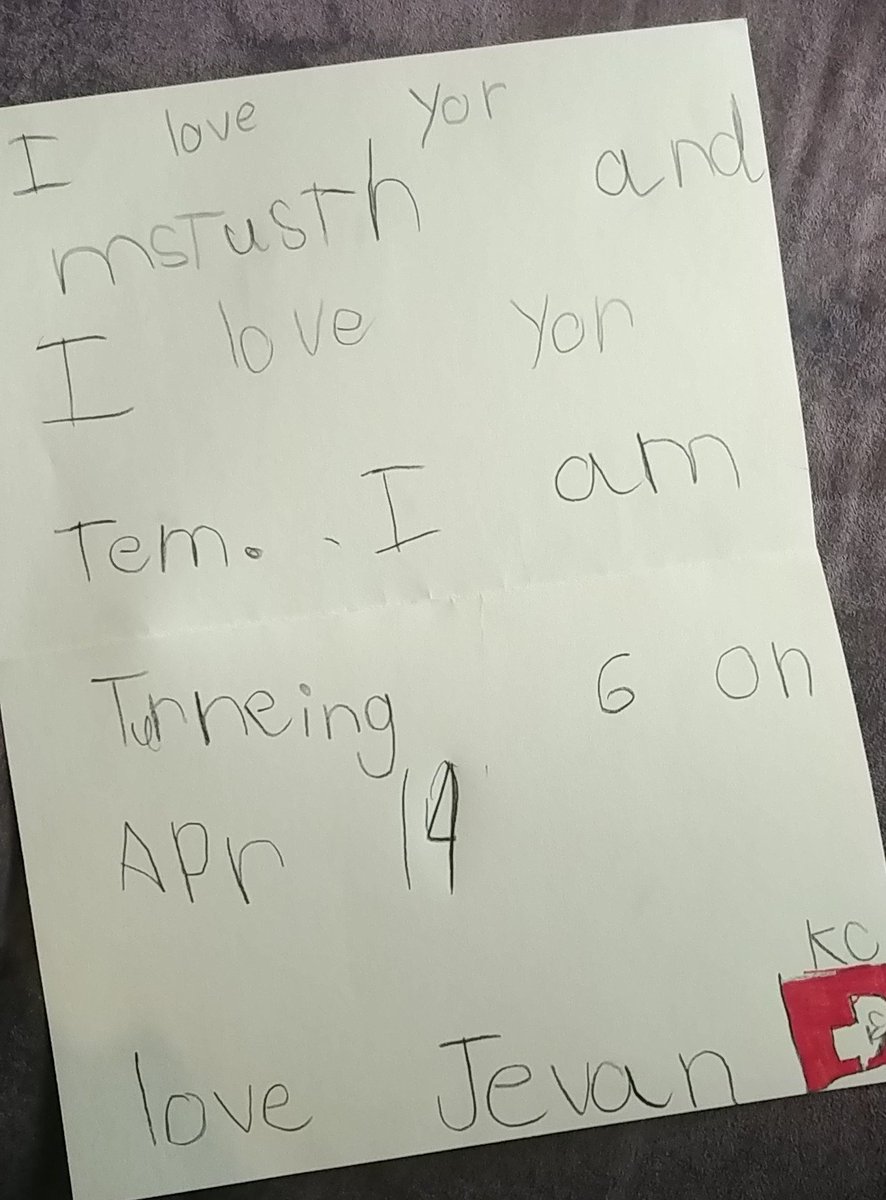 I love yor
msTusTh and
I love yor
Tem. . I am
Turneing 6 on
Apr 14
KC
love Jevan